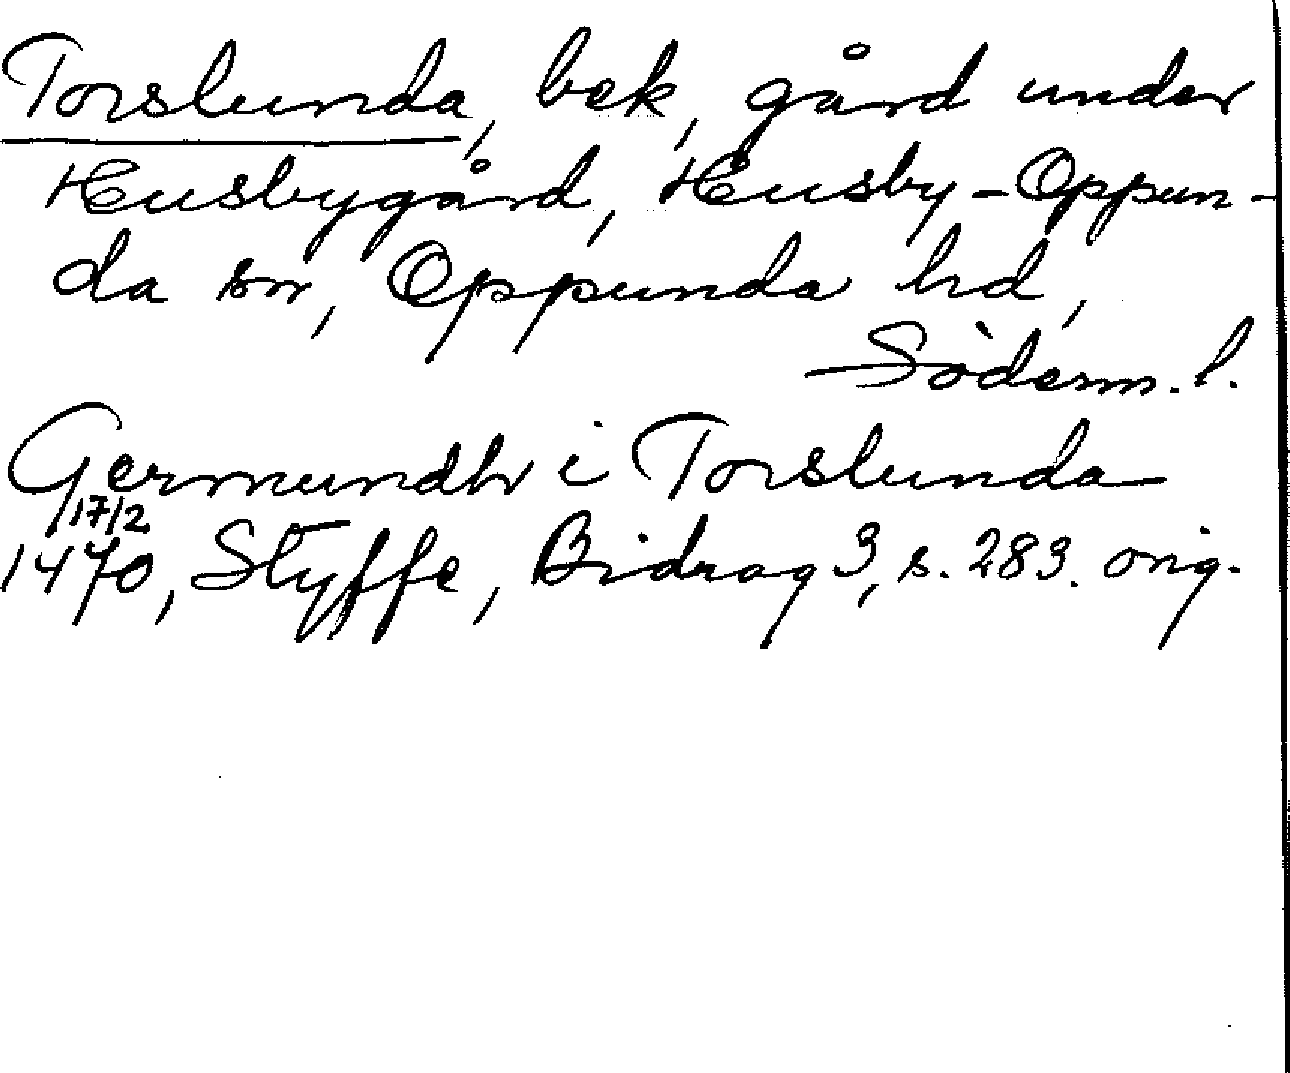 Torslunda, bek, gård under
Husbygård, Husby-Oppun-
da sn, Oppunda hd,
Söderm. l.
Germundh i Torslunda
17/2
1470, Styffe, Bidrag 3, s. 283. orig.